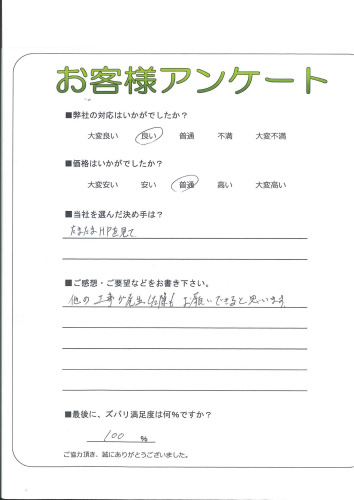 お客様アンケート
■弊社の対応はいかがでしたか？
大変良い 良い 普通 不満 大変不満
■価格はいかがでしたか？
大変安い 安い 普通 高い 大変高い
■当社を選んだ決め手は？
たまたまHPを見て
■ご感想・ご要望などをお書き下さい。
他の工事が発生した際も お願いできると思います。
■最後に、ズバリ満足度は何％ですか？
100 %
ご協力頂き、誠にありがとうございました。